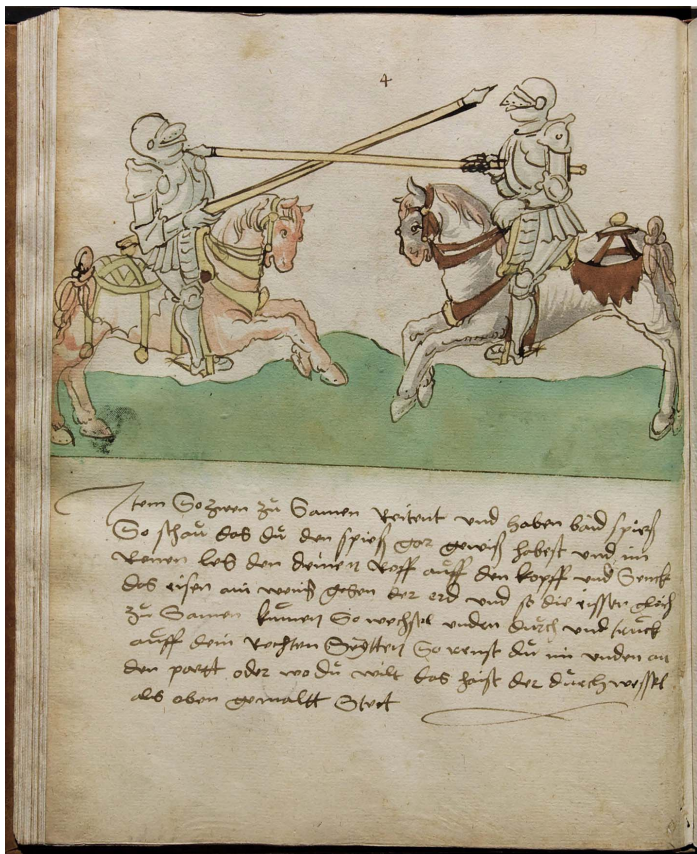 4
Item So zwen zu Samen Reitent vnd haben baid spieß
So schau das du den spieß gar gewiß habest vnd im
Renen les den deinen Roß auff den kopff vnd Senck
das eisen ain wenig gegen der erd vnd so die rosser gleich
zu Samen kumen So wechsel vnden durch vnd ruck
auff dein Rechten Seytten So renst du im vnden an
den part oder wo du wilt das haist der durchwechssel
als oben gemaltt Stett